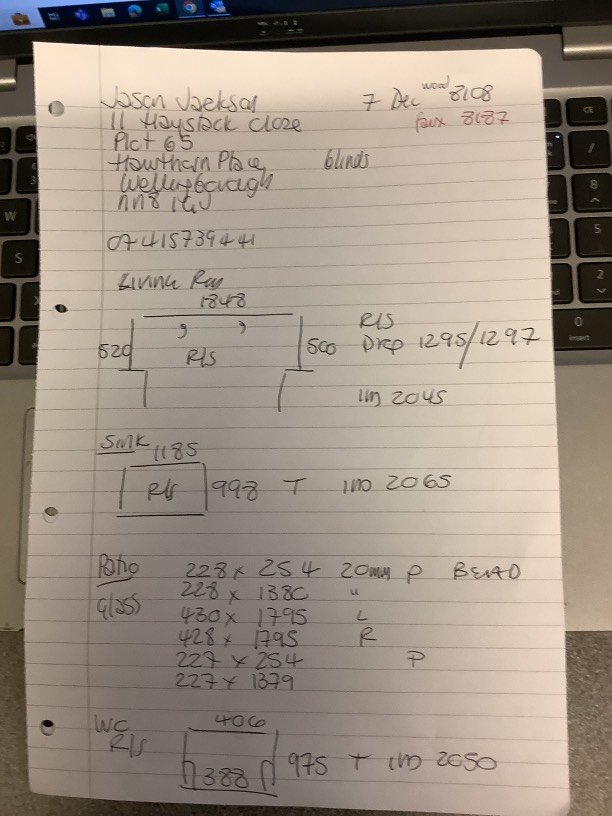 Jason Jackson
7 Dec wood 8108
11 Haystack Cloze
faux 8187
Plot 65
Hawthorn Place, blinds
Wellingborough
NN8
07415739441
Living Rm
1848
520 R/S 500
R/S
Drop 1295/1297
2045
Sink
1185
R/S 998 T 2065
Patio 228 x 254 20mm P BEAD
228 x 1380 "
Glass 430 x 1795 L
428 x 1795 R
227 x 254 P
227 x 1379
WC 406
R/S 388 975 T 2050